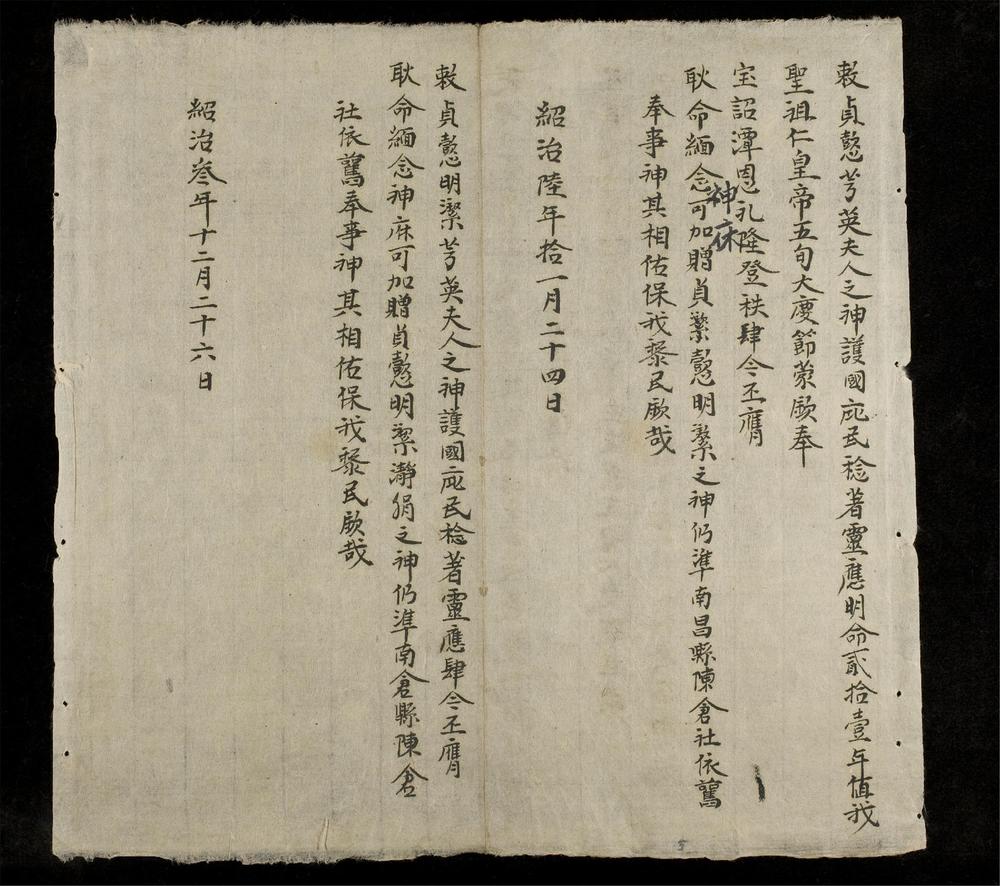 敕貞懿芳英夫人之神護國庇民稔著靈應明命貳拾壹年值我
聖祖仁皇帝五旬大慶節蒙頒奉
宝詔潭恩礼隆登秩肆今丕膺
耿命緬念神庥可加贈貞繁懿明㓗之神仍準南昌縣陳倉社依舊
奉事神其相佑保我黎民欽哉
紹治陸年拾一月二十四日
敕貞懿明潔芳英夫人之神護國庇民稔著靈應肆今丕膺
耿命緬念神庥可加贈貞懿明潔瀞娟之神仍準南倉縣陳倉
社依舊奉事神其相佑保我黎民欽哉
紹治叁年十二月二十六日